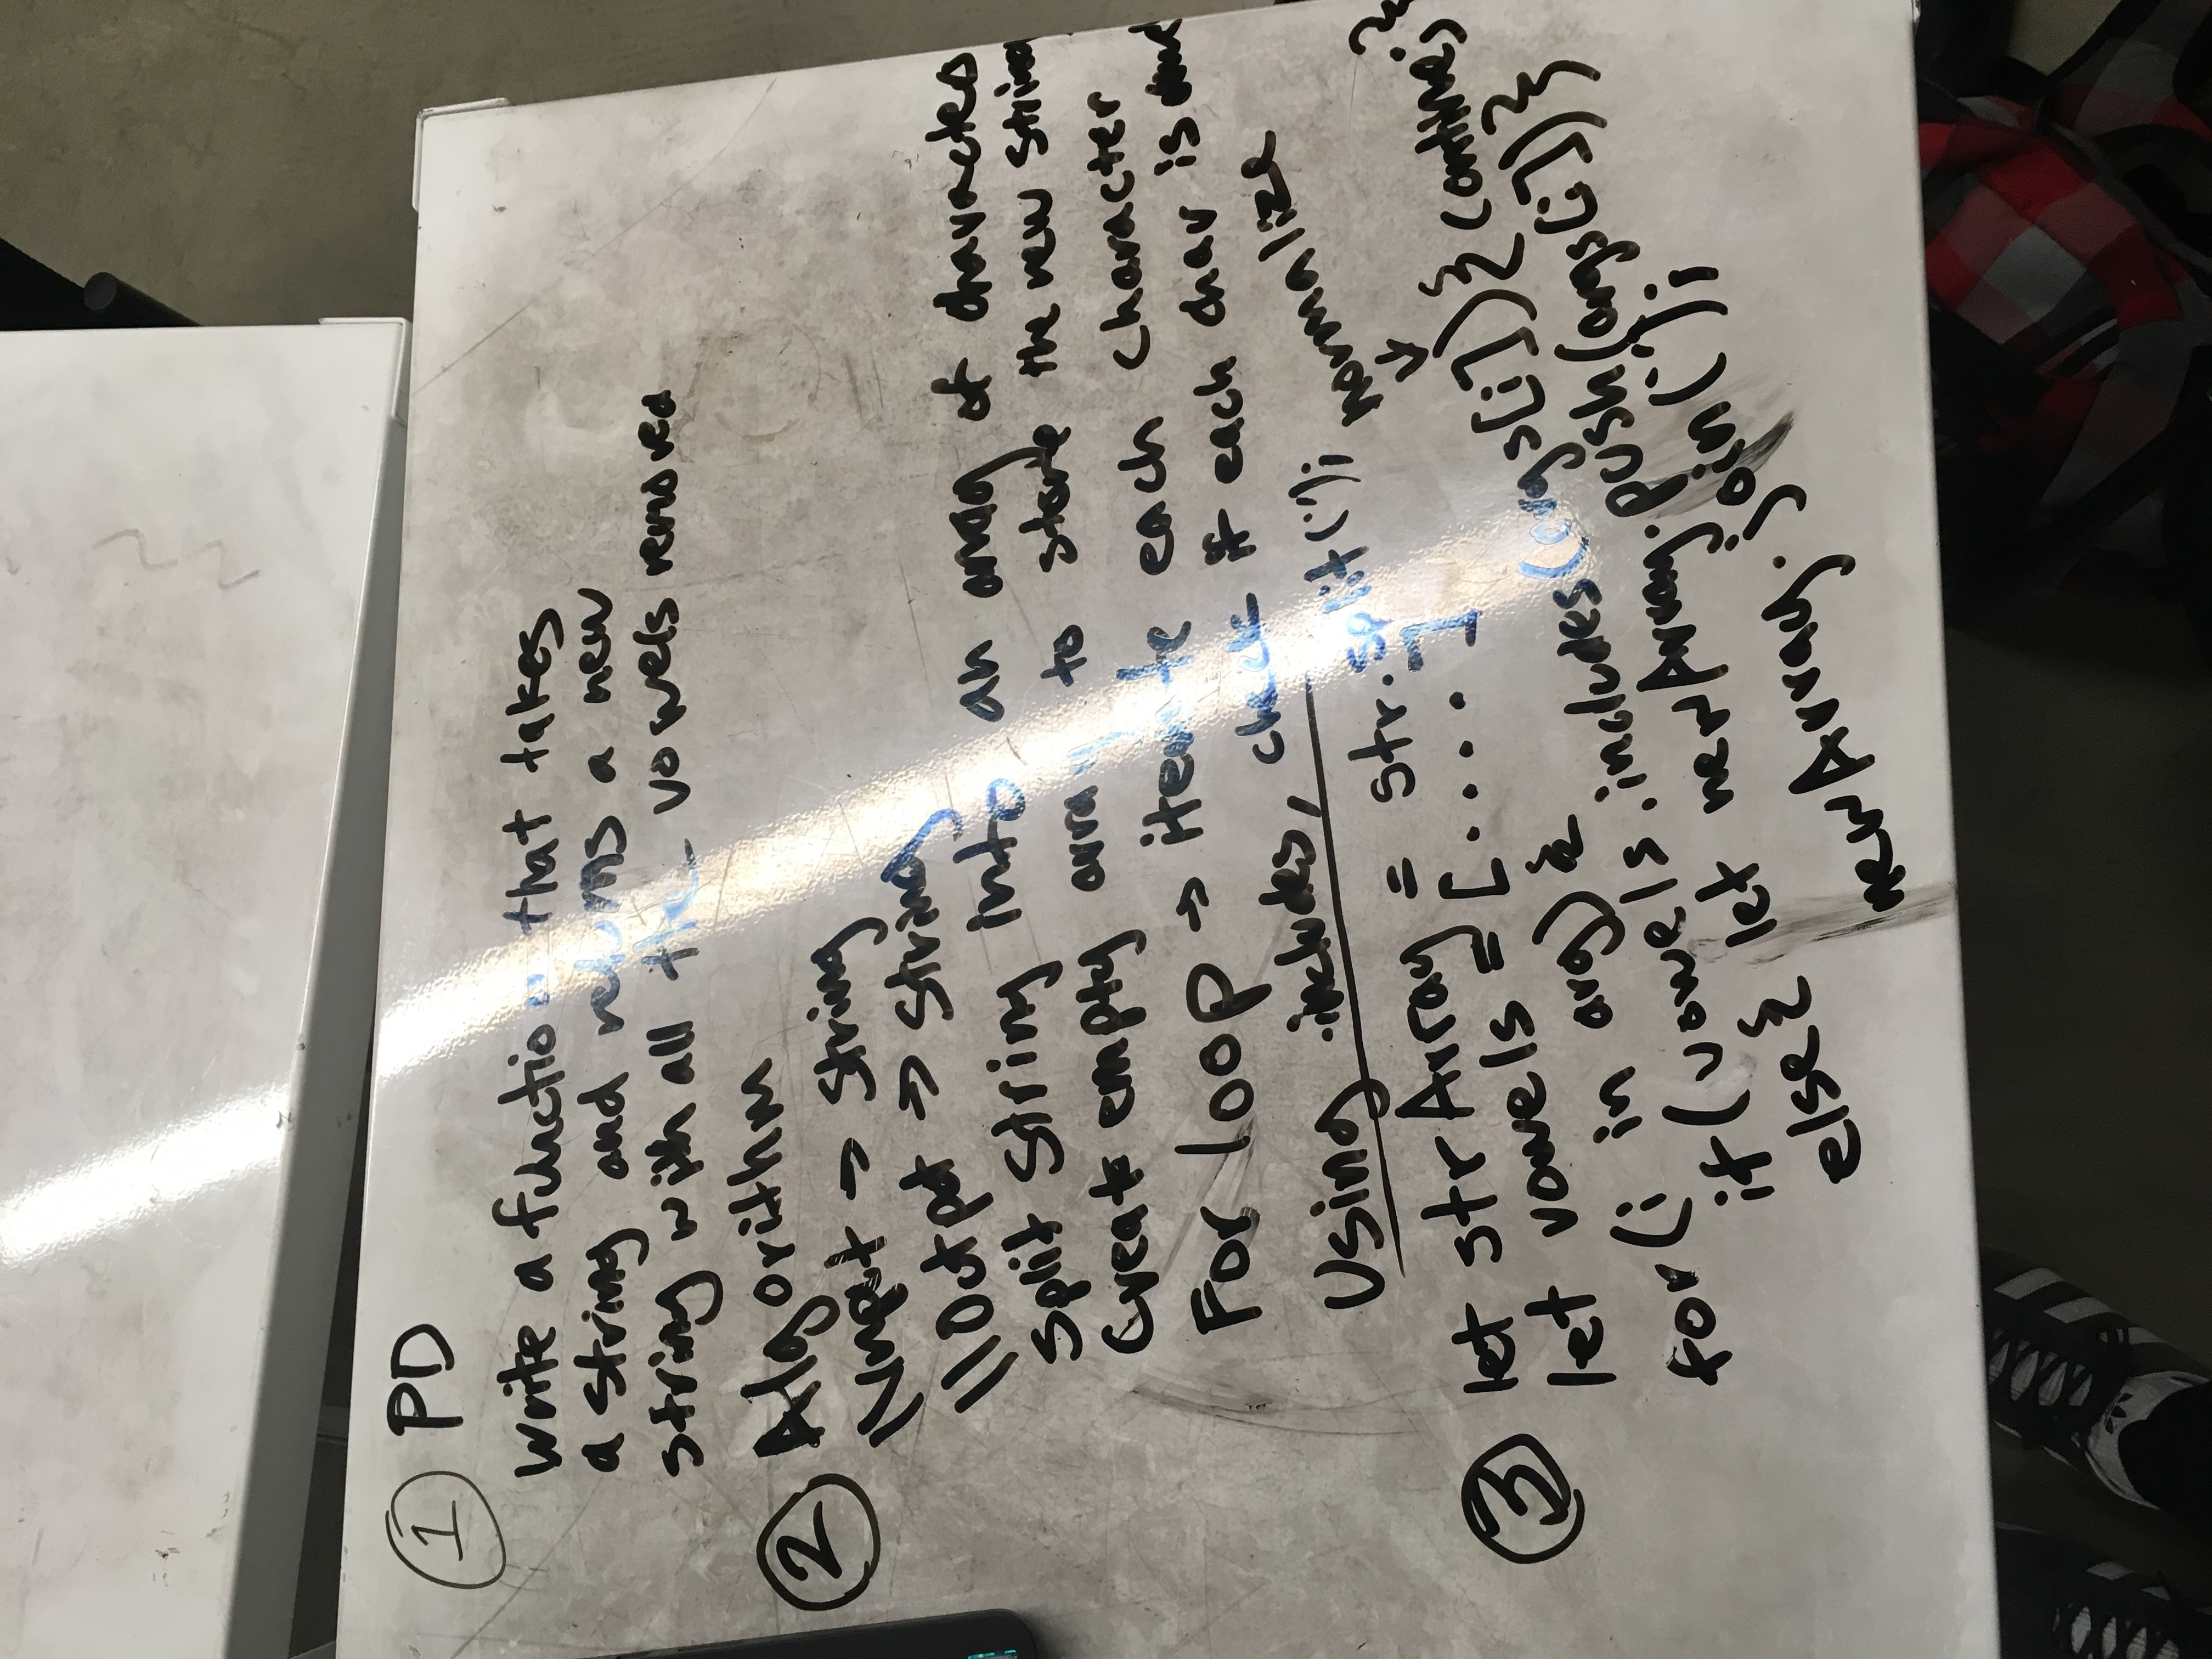 ① PD
Write a function that takes
a string and returns a new
string with all the vowels removed
② Algorithm
\\Input → String
\\Output → String
Split String into an array of characters
Create empty array to store the new string
For loop → iterate each character
Using .includes, check if each char is
normalize
↓
③ let strArray = str.split('');
let vowels = [....]
for(i in arg) {
if(vowels.includes(args[i])){continue;}
else{ let newArray.push(args[i])}}
newArray.join('');